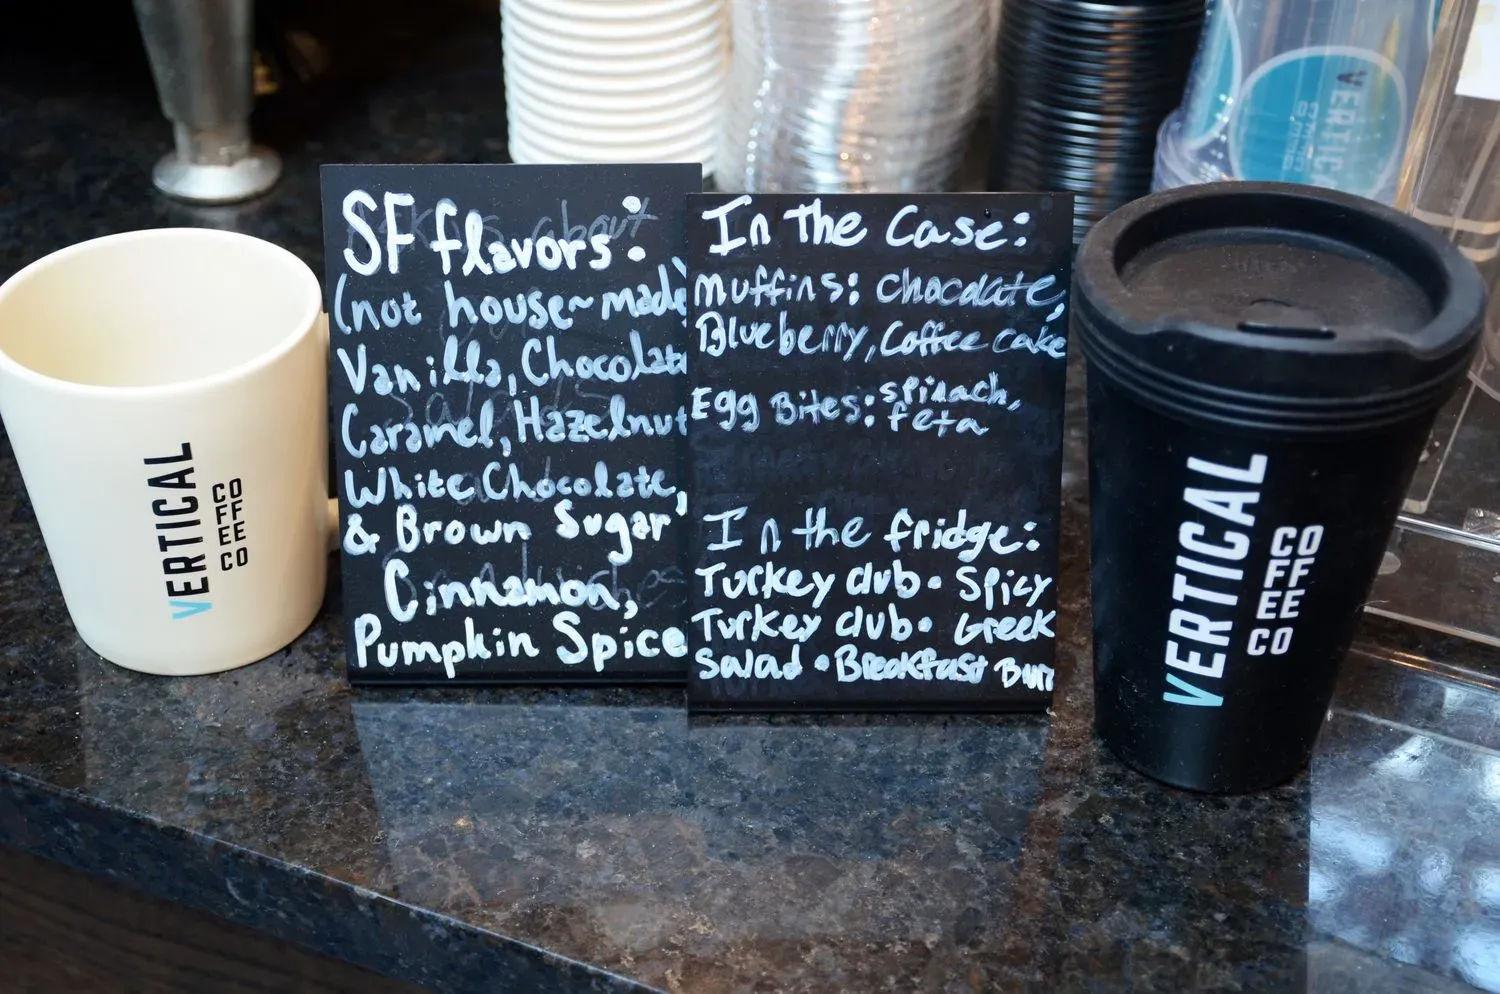 SF flavors:
(not house-made)
Vanilla, Chocolate
Caramel, Hazelnut
White Chocolate,
& Brown Sugar
Cinnamon,
Pumpkin Spice
In The Case:
Muffins: chocolate,
Blueberry, Coffee cake
Egg Bites: spinach,
feta
In the fridge:
Turkey club • Spicy
Turkey club • Greek
Salad • Breakfast Burr
VERTICAL
COFFEE CO
VERTICAL
COFFEE CO
VERTICAL